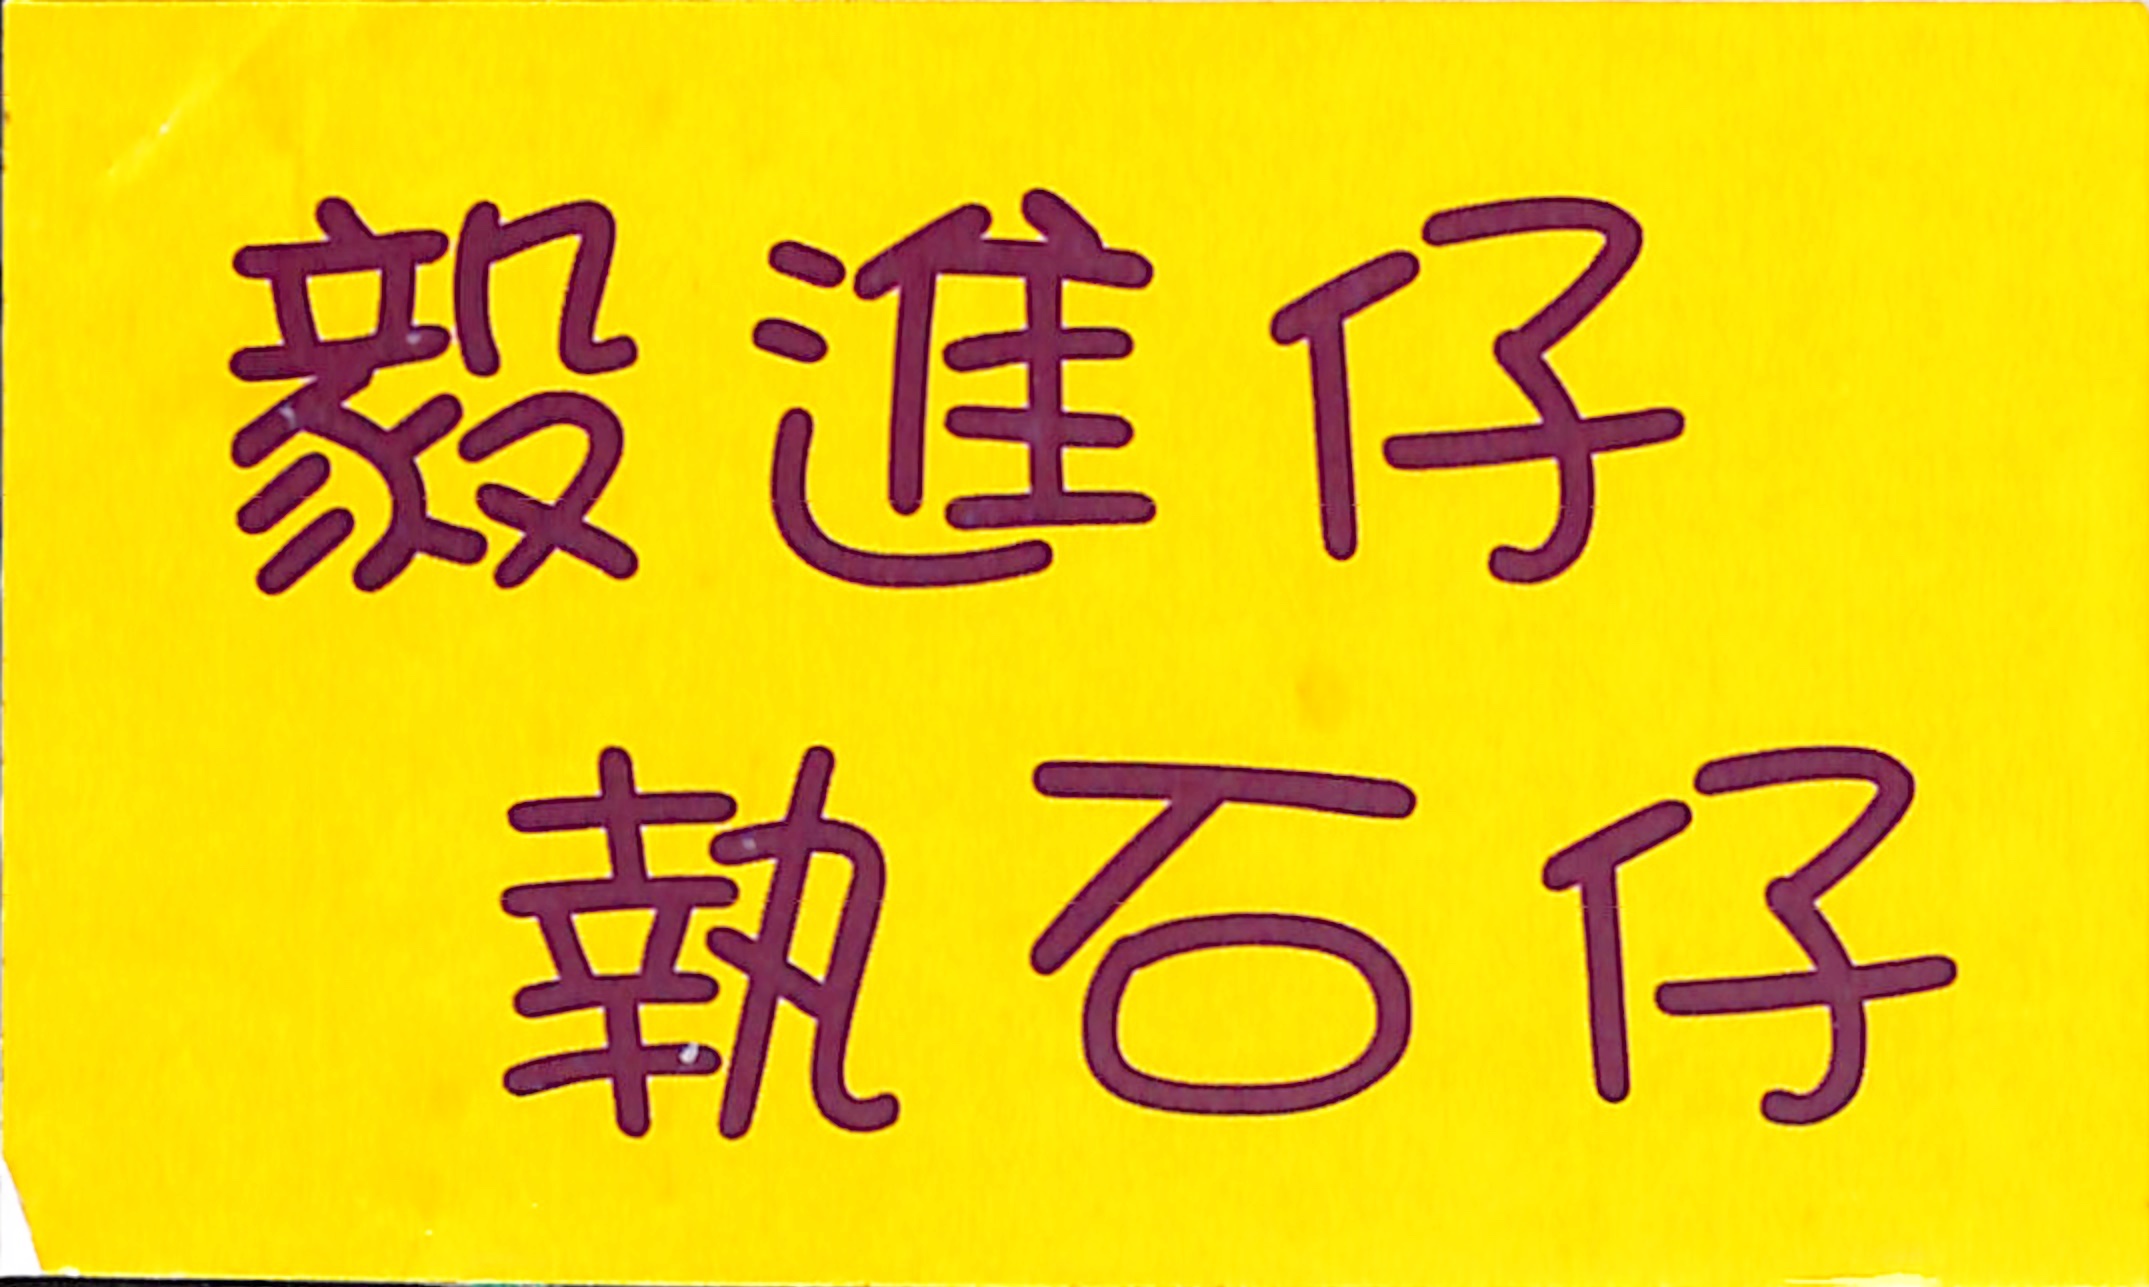 毅進仔
執石仔